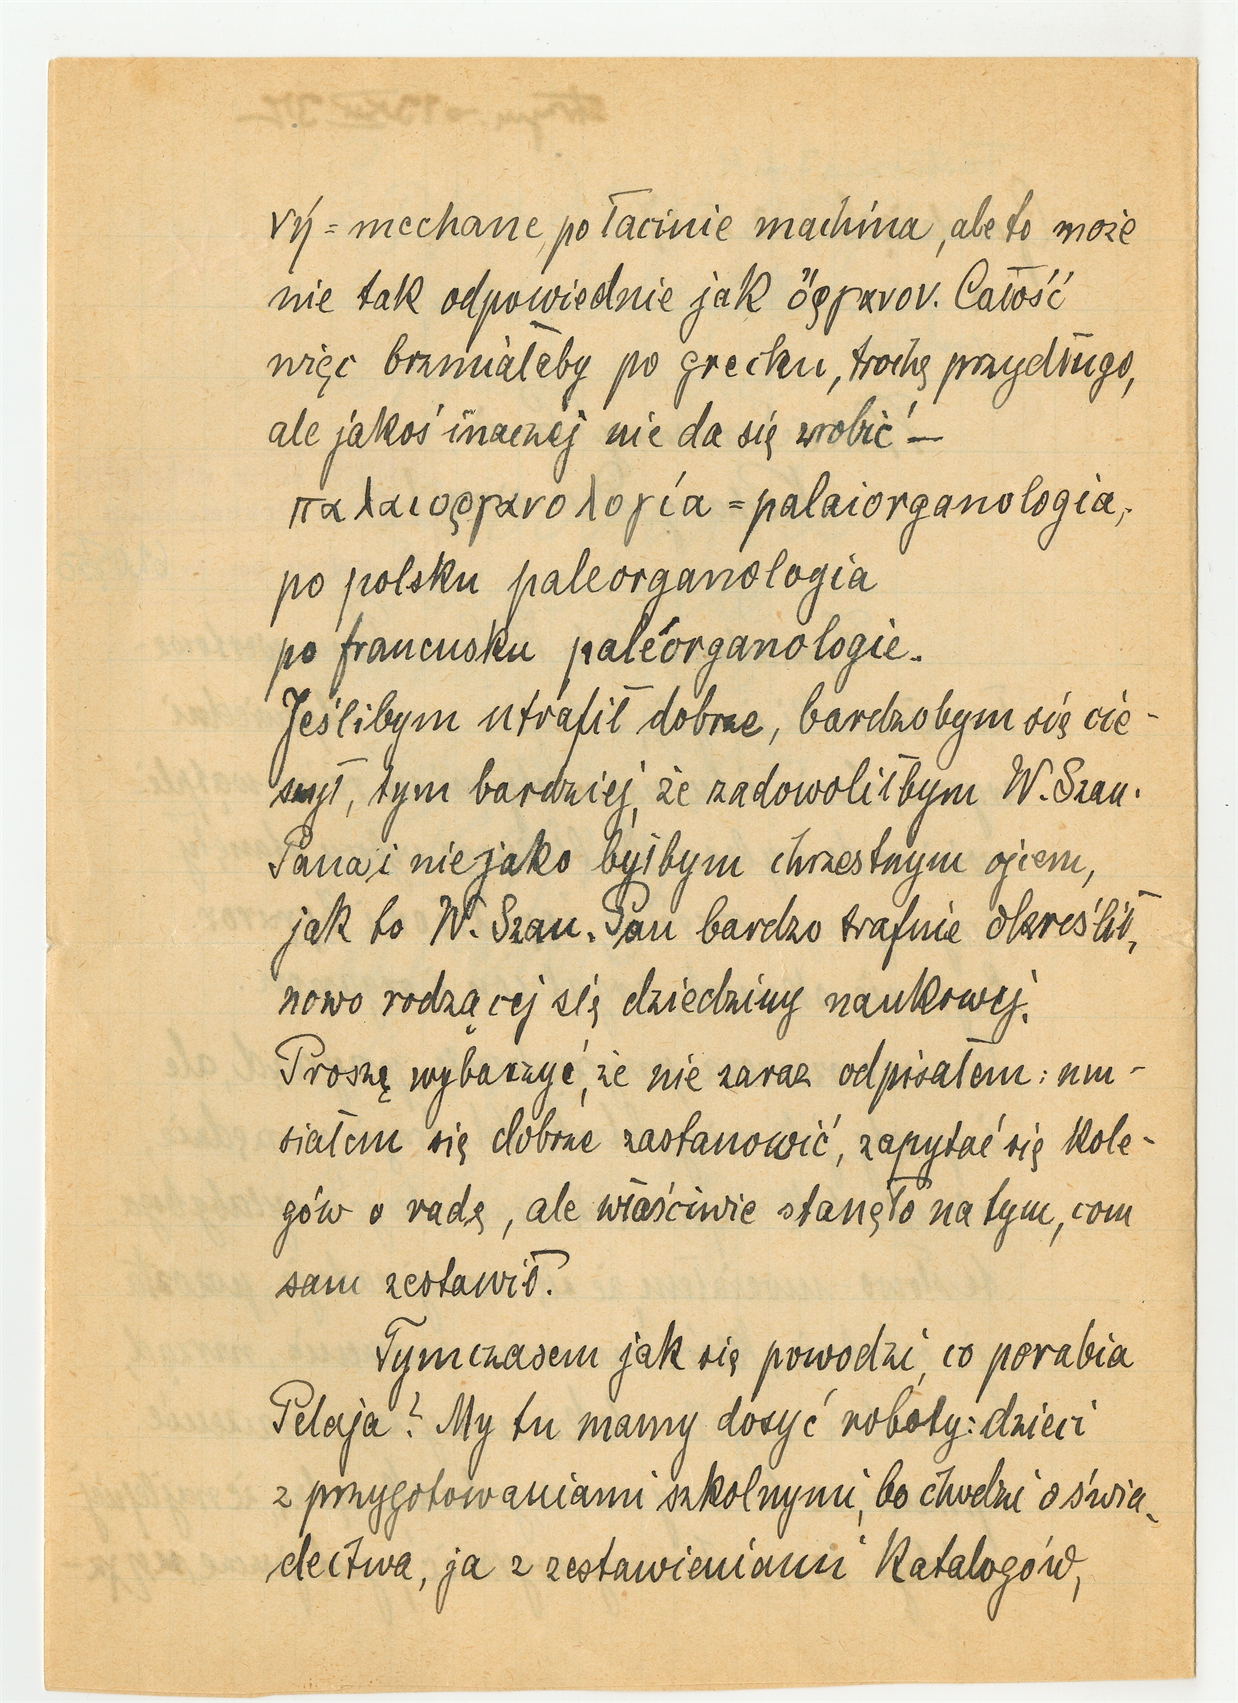 νή = mechane, po łacinie machina, ale to może
nie tak odpowiednie jak ὄργανον. Całość
więc brzmiałaby po grecku, trochę przydługo,
ale jakoś inaczej nie da się zrobić –
παλαιοργανολογία = palaiorganologia,
po polsku paleorganologia
po francusku paléorganologie.
Jeślibym utrafił dobrze, bardzobym się cie-
szył, tym bardziej, że zadowoliłbym W. Szan.
Pana i niejako byłbym chrzestnym ojcem,
jak to W. Szan. Pan bardzo trafnie określił,
nowo rodzącej się dziedziny naukowej.
Proszę wybaczyć, że nie zaraz odpisałem: mu-
siałem się dobrze zastanowić, zapytać się kole-
gów o radę, ale właściwie stanęło na tym, com
sam zestawił.
Tymczasem jak się powodzi, co porabia
Pelaja? My tu mamy dosyć roboty: dzieci
z przygotowaniami szkolnymi, bo chodzi o świa-
dectwa, ja z zestawieniami Katalogów,